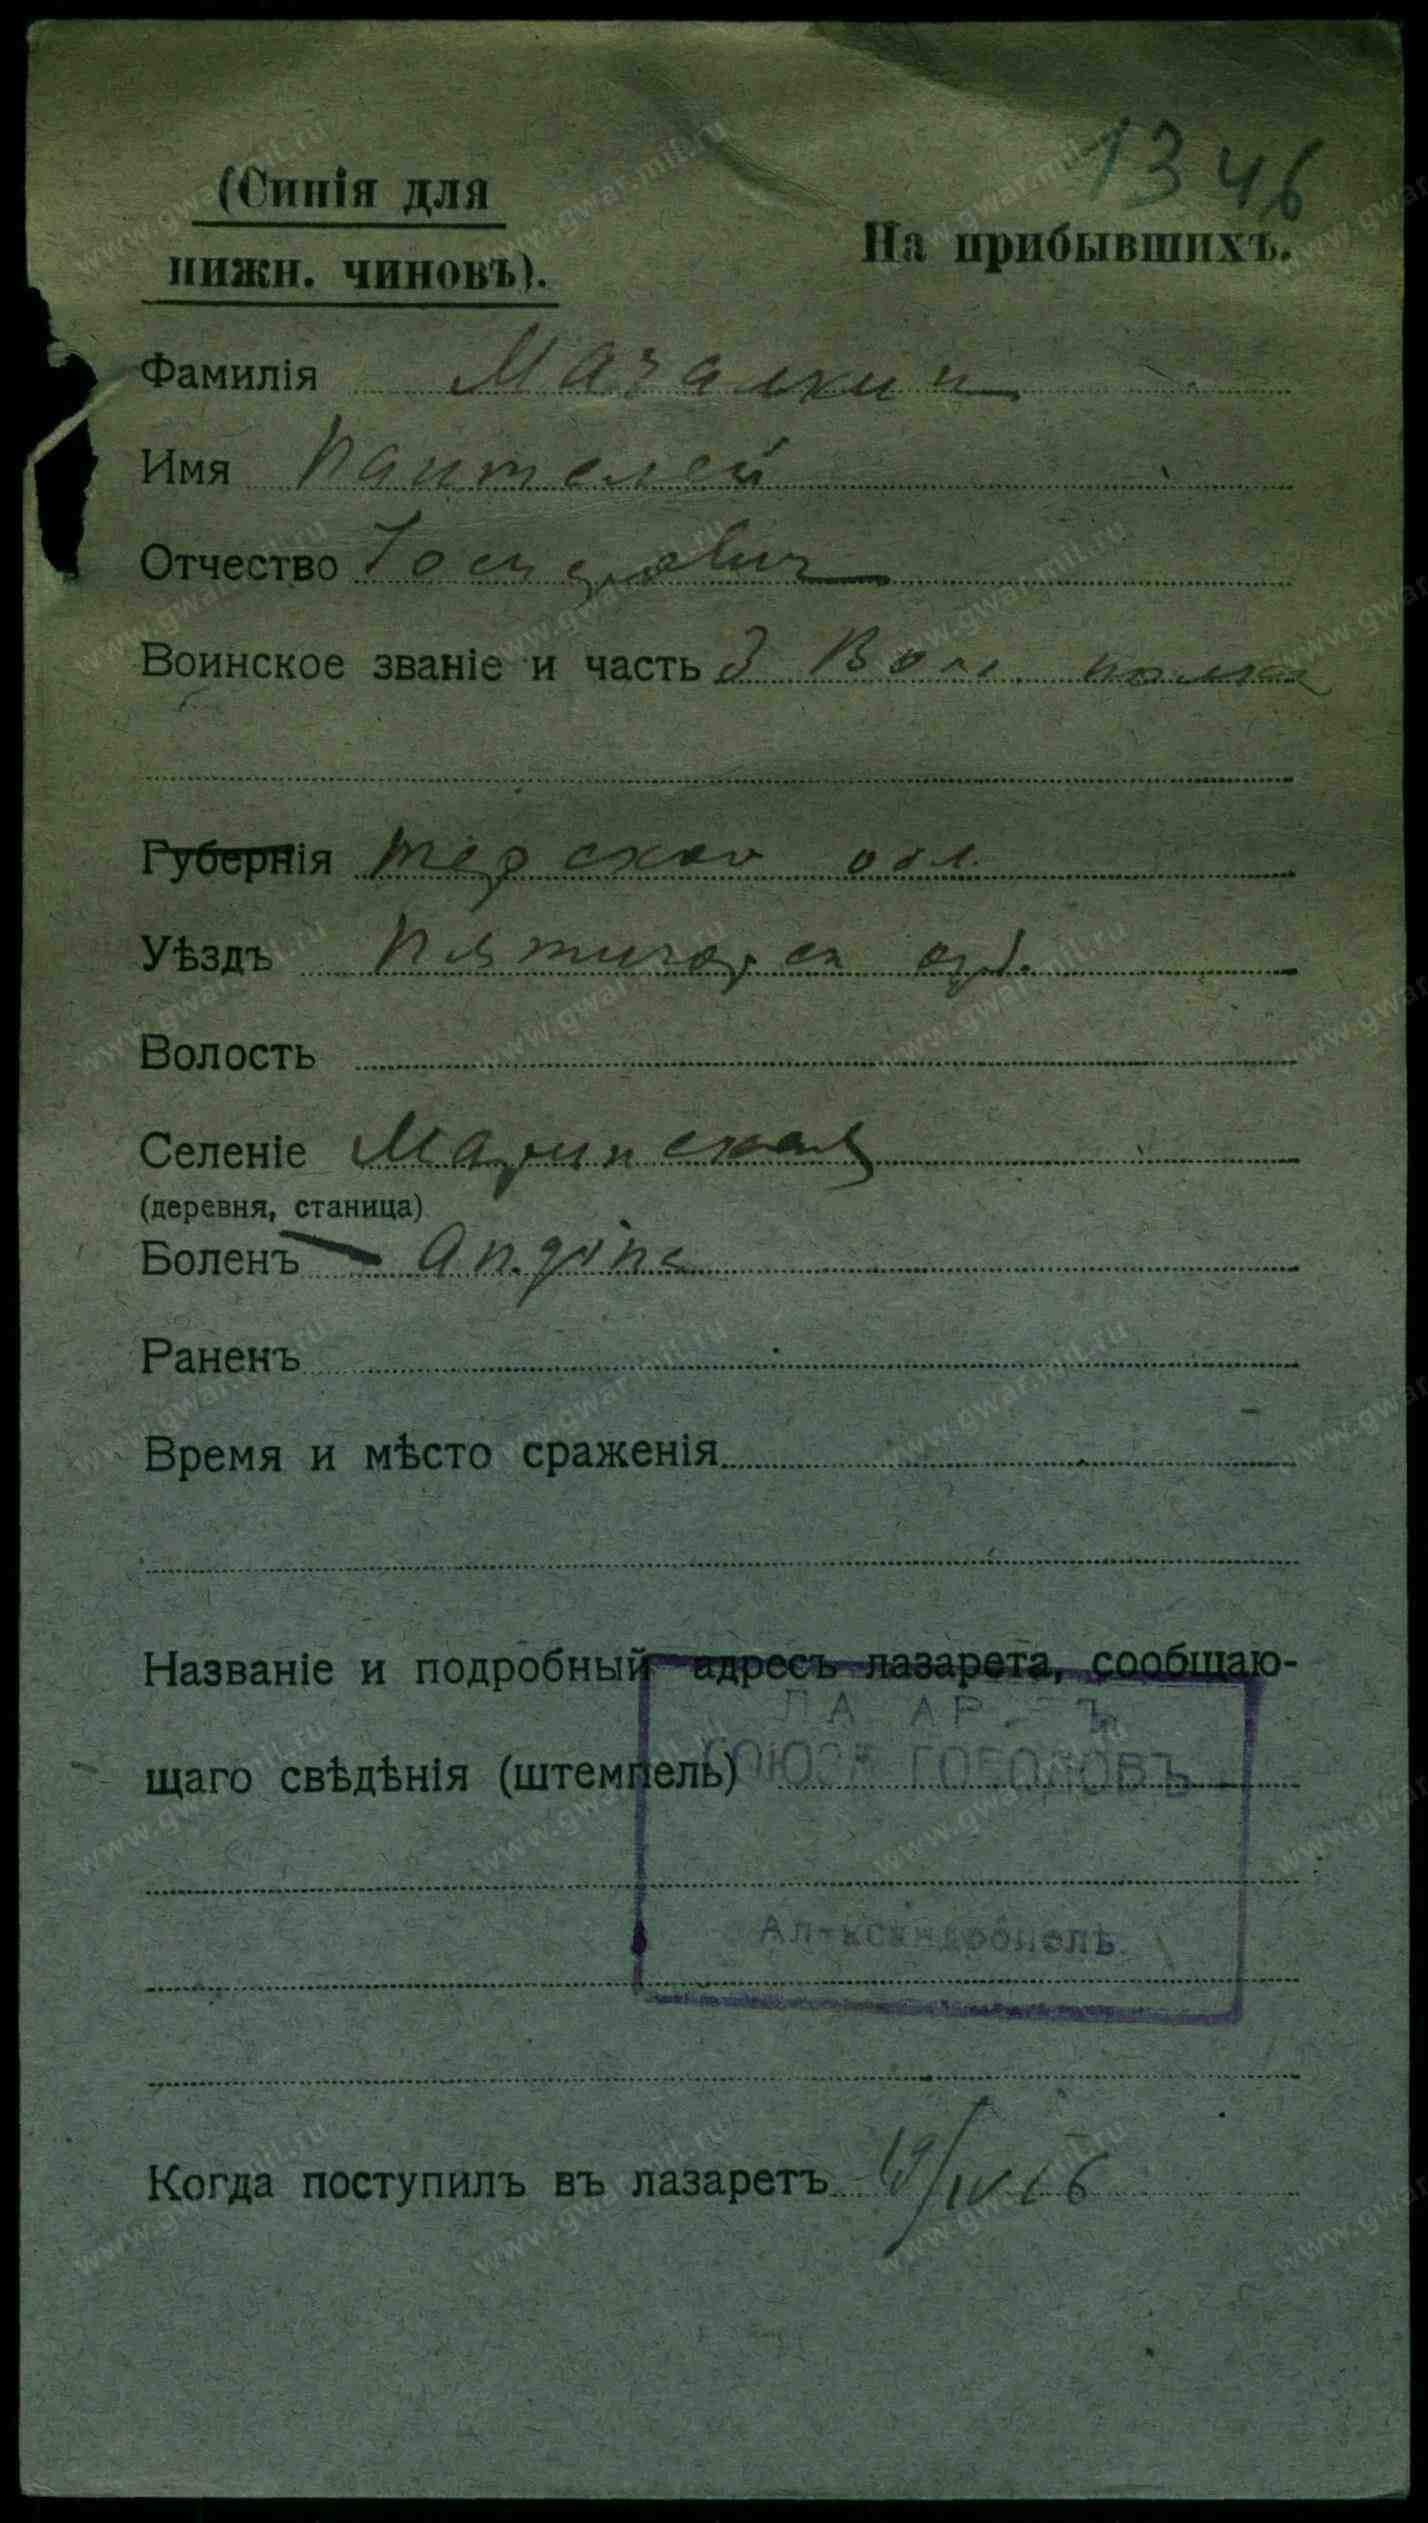 1346
(Синія для
нижн. чиновъ).
На прибывшихъ.
Фамилія Мачалкин
Имя Пантелей
Отчество
Воинское званіе и часть 3 Волг. полка
Губернія Терской обл.
Уѣздъ Пятигорск
Волость
Селеніе Маринская
(деревня, станица)
Боленъ Angina
Раненъ
Время и мѣсто сраженія
Названіе и подробный адресъ лазарета, сообщаю-
щаго свѣдѣнія (штемпель)
СОЮЗА ГОРОДОВЪ
Александрополь
Когда поступилъ въ лазаретъ 19/IV 16
www.gwar.mil.ru